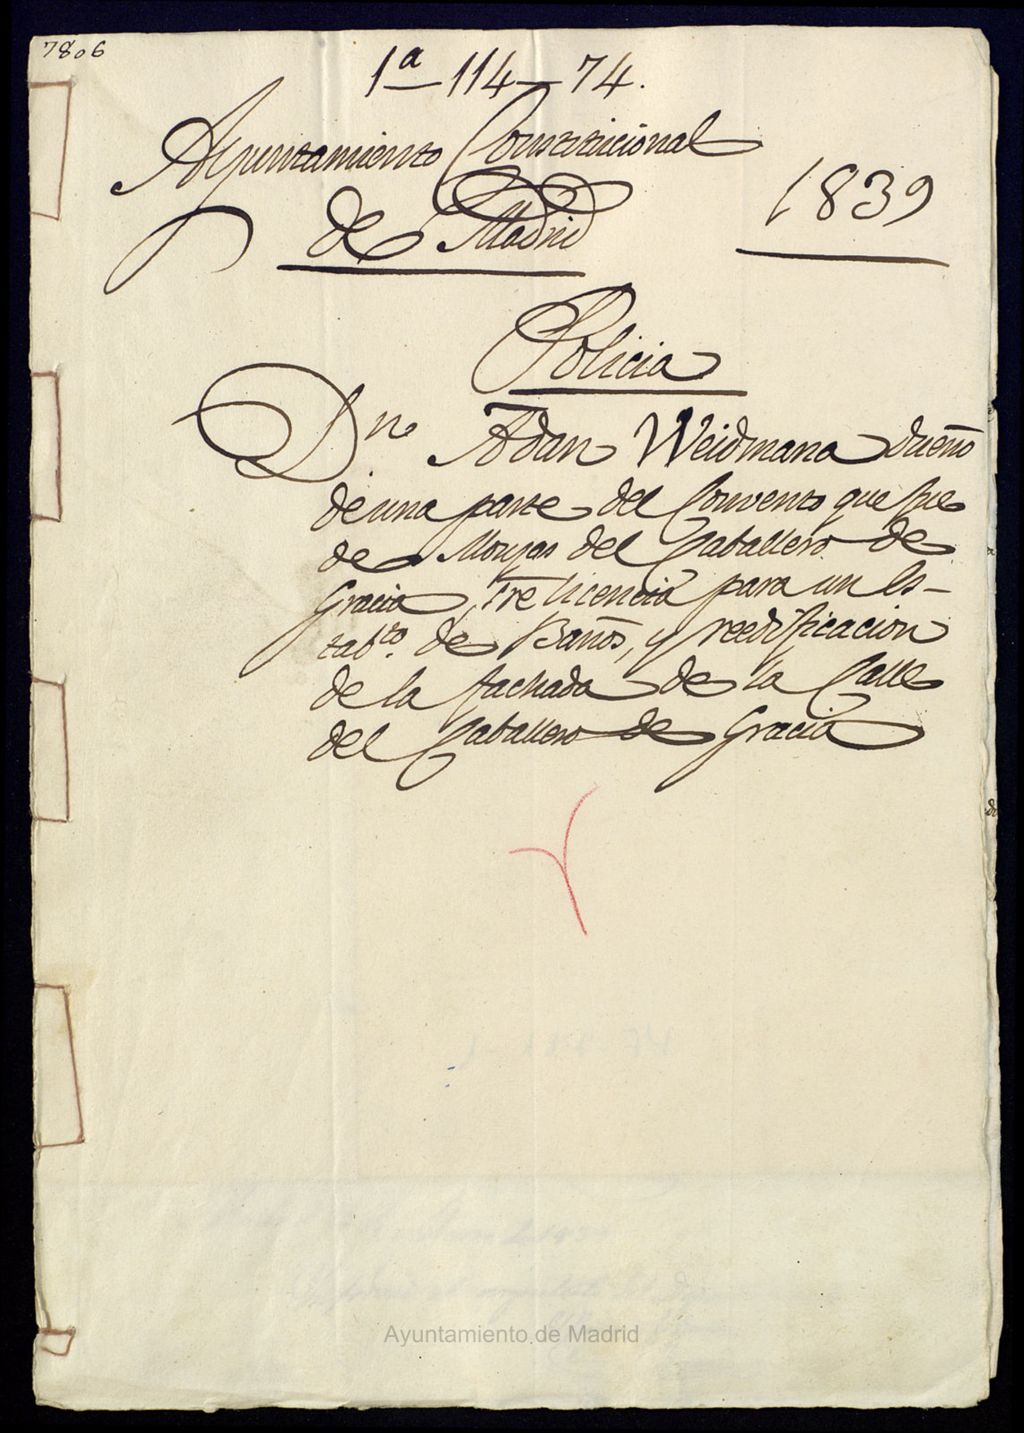 7806
1ª-114-74.
Ayuntamiento Constitucional
de Madrid
1839
Policia
Dn. Adan Weidmana dueño
de una parte del Convento que fue
de Monjas del Caballero de
Gracia, sre licencia para un Es-
tabto. de Baños, y reedificacion
de la fachada de la Calle
del Caballero de Gracia
Ayuntamiento de Madrid